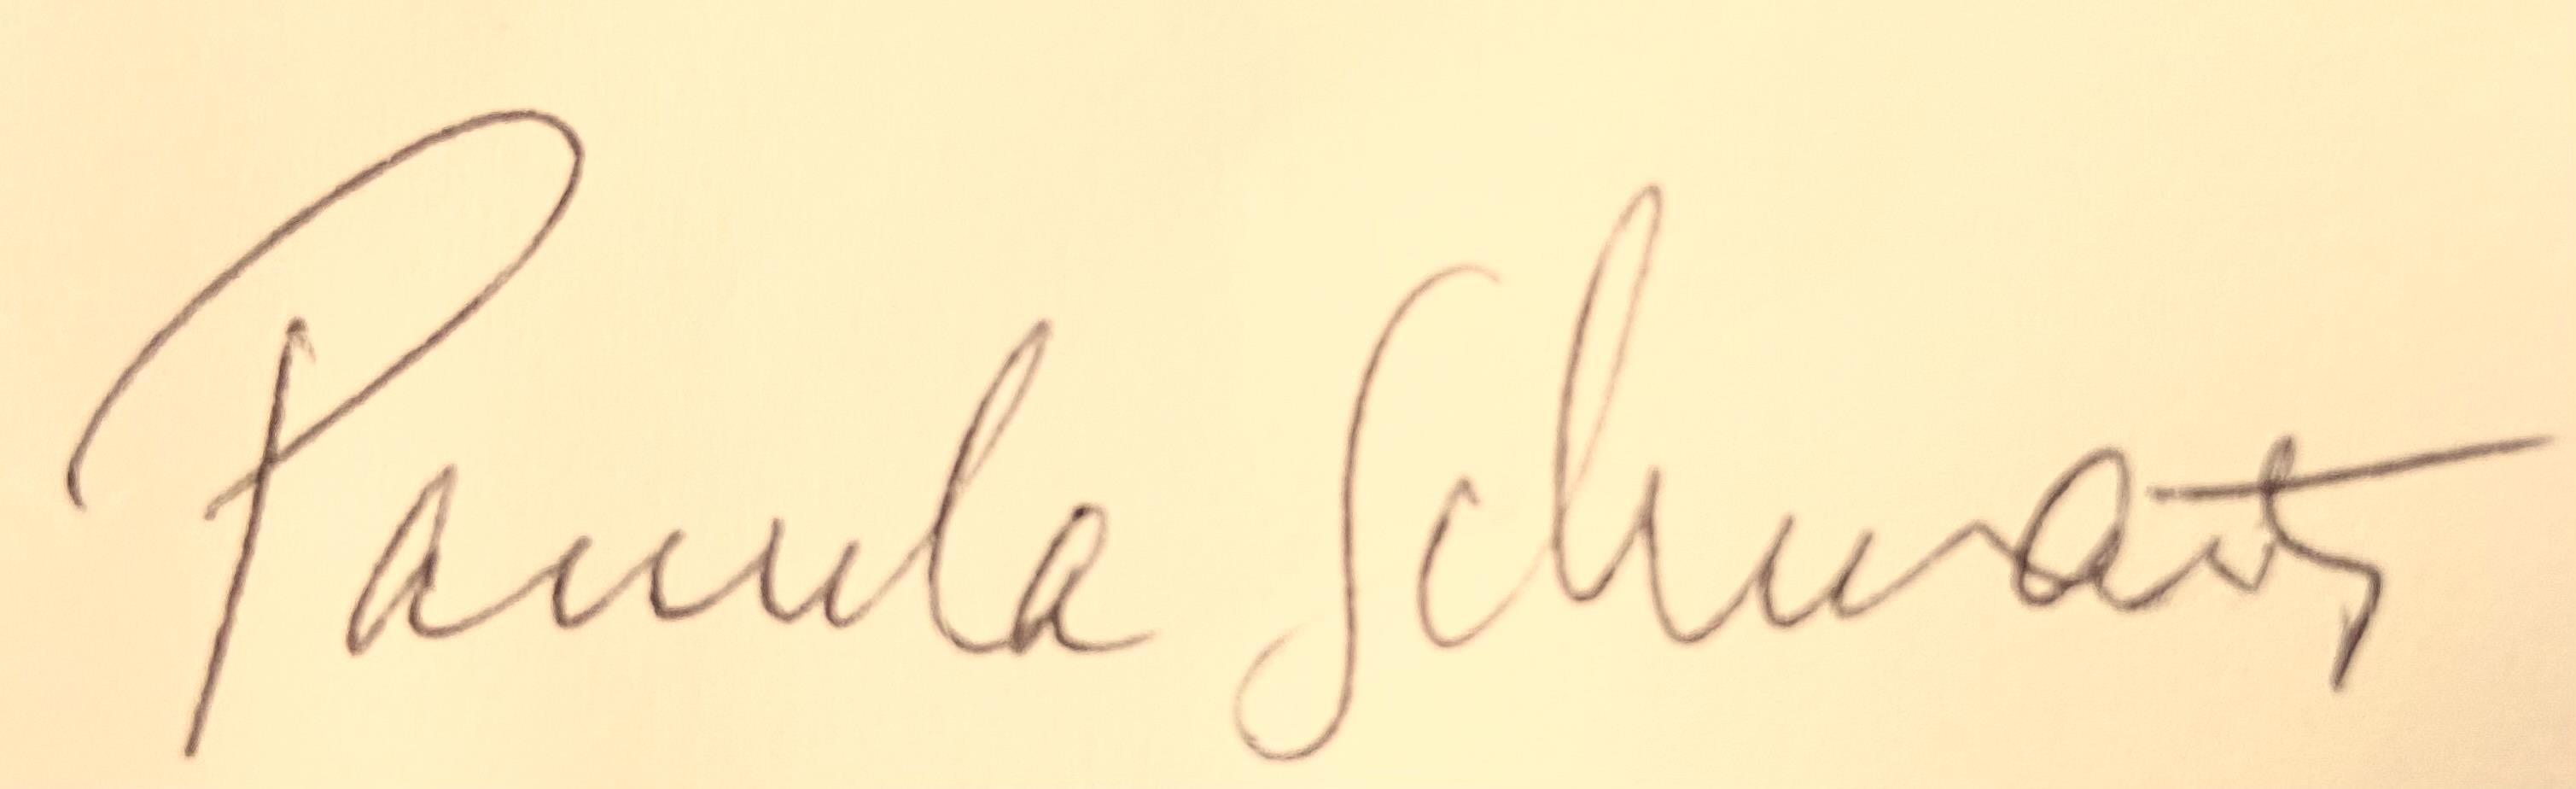 Pamela Schwartz